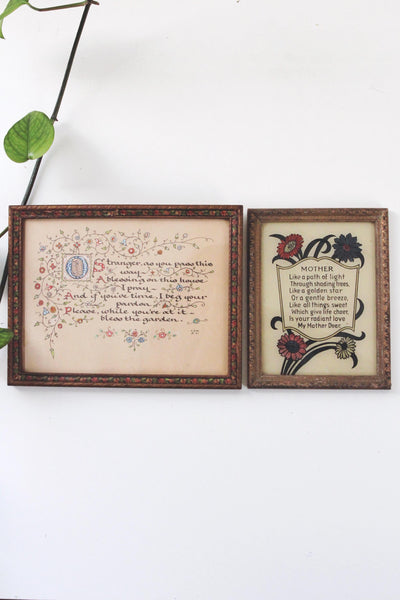 Stranger, as you pass this
way—
A blessing on this house
I pray—
And if you've time, I beg your
pardon,
Please, while you're at it
bless the garden.
MOTHER
Like a path of light
Through shading trees,
Like a golden star
Or a gentle breeze,
Like all things sweet
Which give life cheer,
Is your radiant love
My Mother Dear.